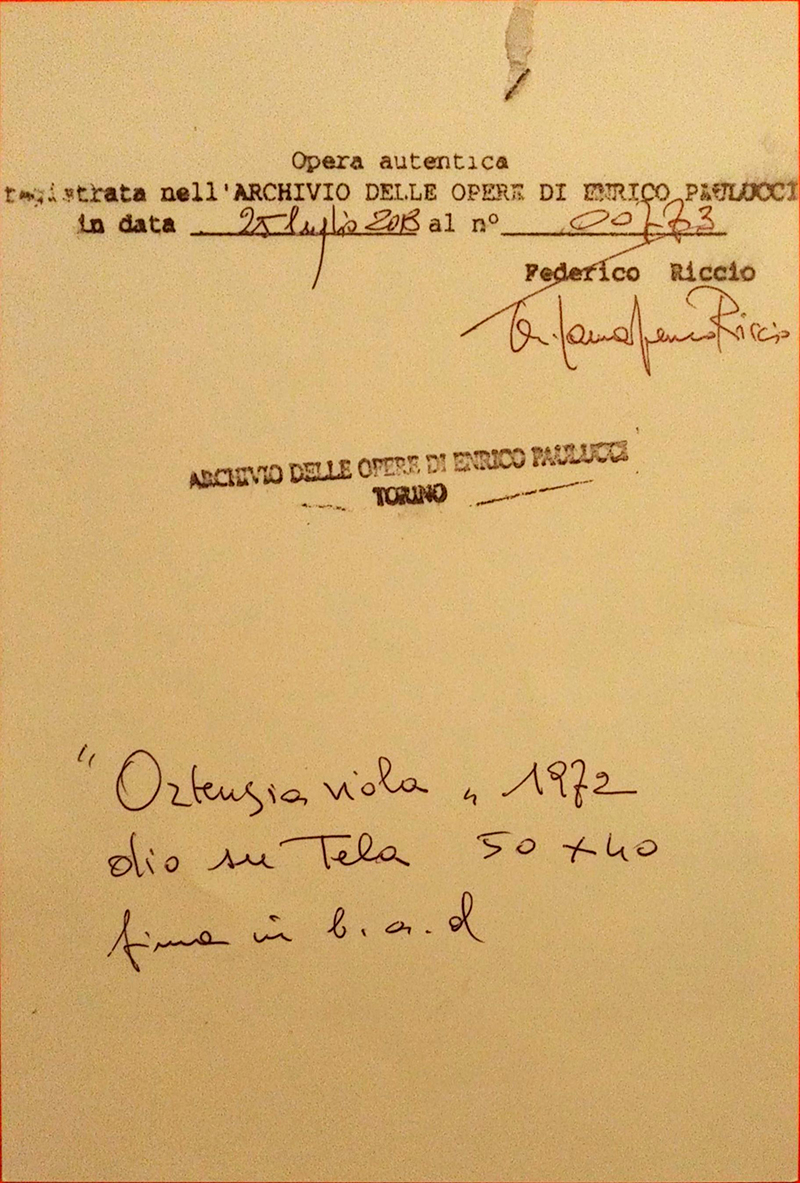 Opera autentica
registrata nell'ARCHIVIO DELLE OPERE DI ENRICO PAULUCCI
in data 25 luglio 2013 al n° 00773
Federico Riccio
Riccio
ARCHIVIO DELLE OPERE DI ENRICO PAULUCCI
TORINO
"Ortensia viola" 1972
olio su Tela 50 x 40
firma in b. a. d